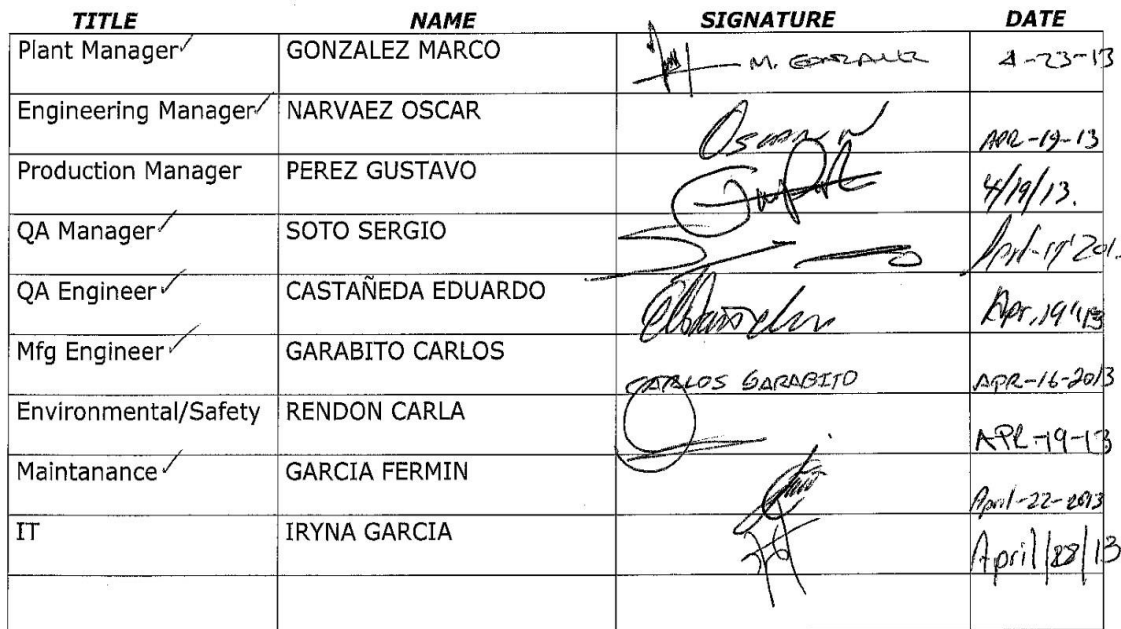 TITLE NAME SIGNATURE DATE
Plant Manager GONZALEZ MARCO M. GONZALEZ 4-23-13
Engineering Manager NARVAEZ OSCAR Oscar N APR-19-13
Production Manager PEREZ GUSTAVO 4/19/13.
QA Manager SOTO SERGIO
QA Engineer CASTAÑEDA EDUARDO Apr. 19 '13
Mfg Engineer GARABITO CARLOS CARLOS GARABITO APR-16-2013
Environmental/Safety RENDON CARLA APR-19-13
Maintanance GARCIA FERMIN April-22-2013
IT IRYNA GARCIA April/22/13